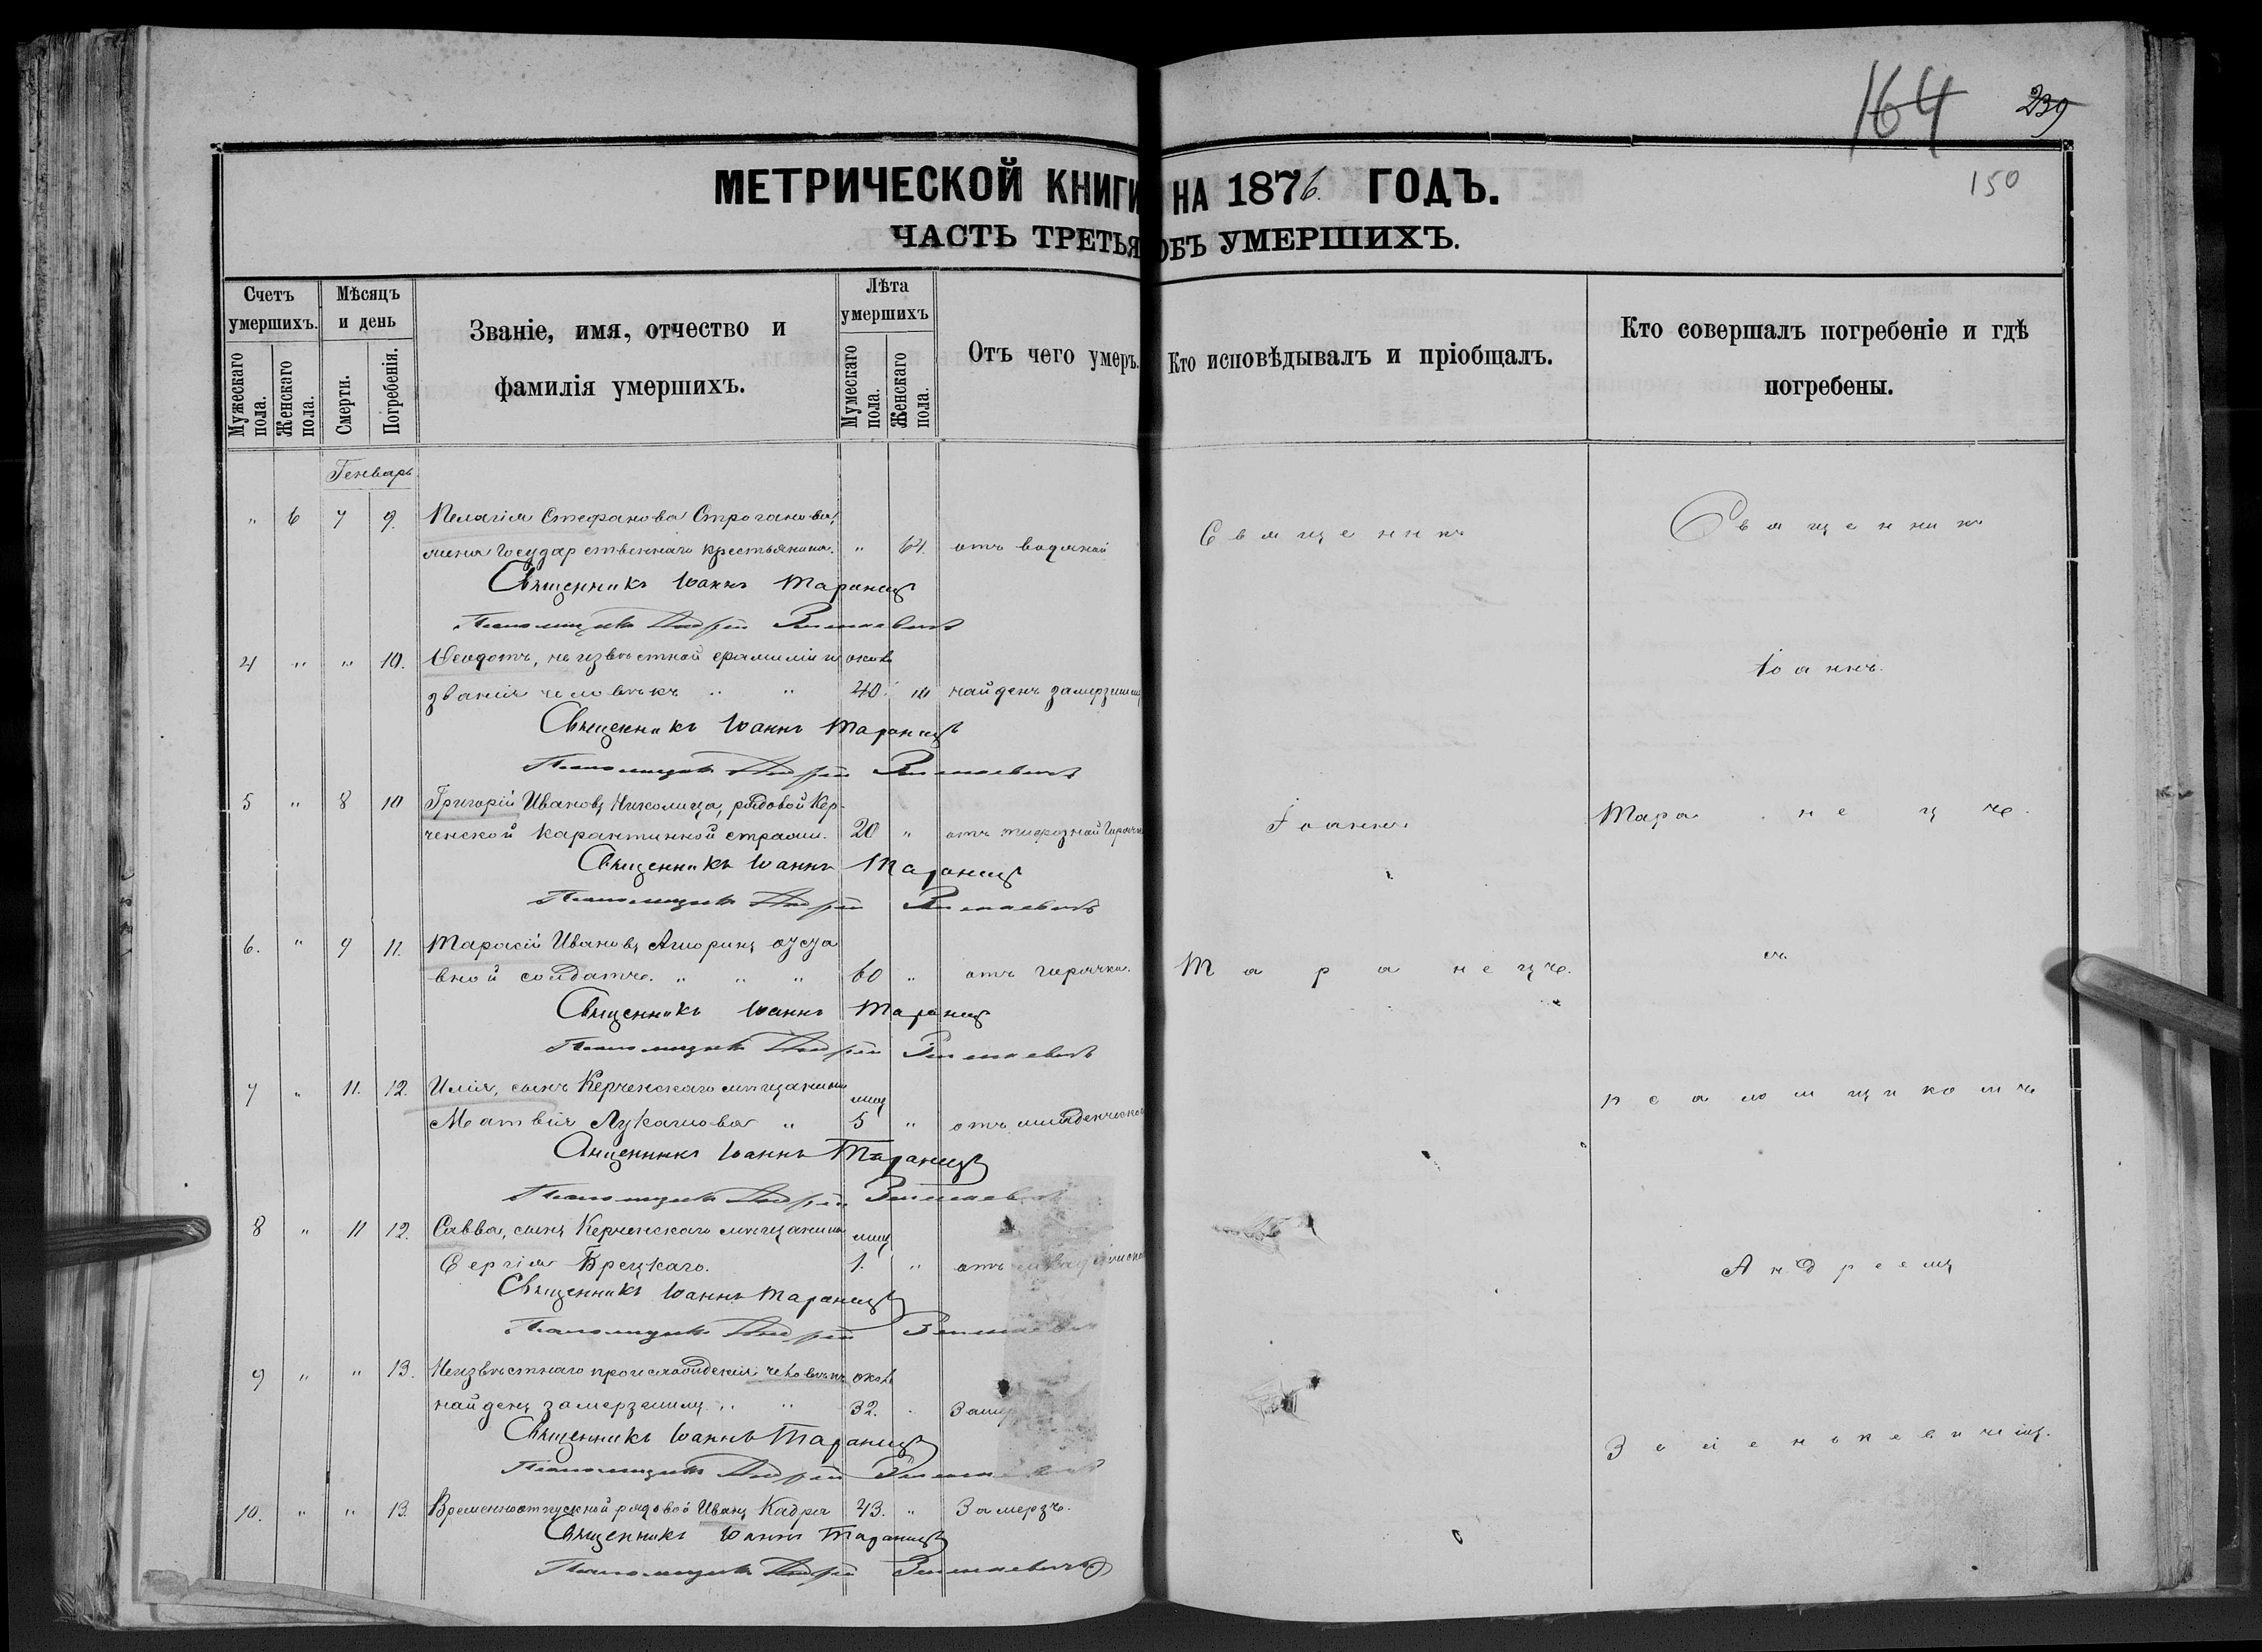 164 239
150
МЕТРИЧЕСКОЙ КНИГИ НА 1876. ГОДЪ.
ЧАСТЬ ТРЕТЬЯ ОБЪ УМЕРШИХЪ.
Счетъ умершихъ.
Мужескаго пола.
Женскаго пола.
Мѣсяцъ и день
Смерти.
Погребенія.
Званіе, имя, отчество и
фамилія умершихъ.
Лѣта умершихъ
Мужескаго пола.
Женскаго пола.
Отъ чего умеръ.
Кто исповѣдывалъ и пріобщалъ.
Кто совершалъ погребеніе и гдѣ
погребены.
Генварь.
" 6 7 9. Пелагія Стефанова Строганова,
жена Государственнаго крестьянина. " 64. отъ водяной
Священникъ Іоаннъ Таранецъ
Псаломщикъ Андрей
4 " " 10. Ѳеодотъ, неизвѣстной фамиліи и около
званія человѣкъ " " 40. " найденъ замерзшимъ
Священникъ Іоаннъ Таранецъ
Псаломщикъ Андрей
5 " 8 10 Григорій Ивановъ Николица, рядовой Кер-
ченской карантинной стражи. 20 " отъ тифозной Горячки
Священникъ Іоаннъ Таранецъ
Псаломщикъ Андрей
6. " 9 11. Тарасій Ивановъ
вной солдатъ. " " " 60 " отъ горячки.
Священникъ Іоаннъ Таранецъ
Псаломщикъ Андрей
7 " 11. 12. Илія, сынъ Керченскаго мѣщанина мѣс
Матвія Лукашова " 5 " отъ младенческой
Священникъ Іоаннъ Таранецъ
Псаломщикъ Андрей
8 " 11 12. Савва, сынъ Керченскаго мѣщанина мѣс
Сергія 1. " отъ
Священникъ Іоаннъ Таранецъ
Псаломщикъ Андрей
9 " " 13. Неизвѣстнаго происхожденія человѣкъ около
найденъ замерзшимъ " " 32.
Священникъ Іоаннъ Таранецъ
Псаломщикъ Андрей
10. " " 13. Временноотпускной рядовой Иванъ Кадра 43. " Замерзъ.
Священникъ Іоаннъ Таранецъ
Псаломщикъ Андрей
Священникъ
Іоаннъ
Таранецъ.
Священникъ
Іоаннъ
Таранецъ
съ
псаломщикомъ
Андреемъ